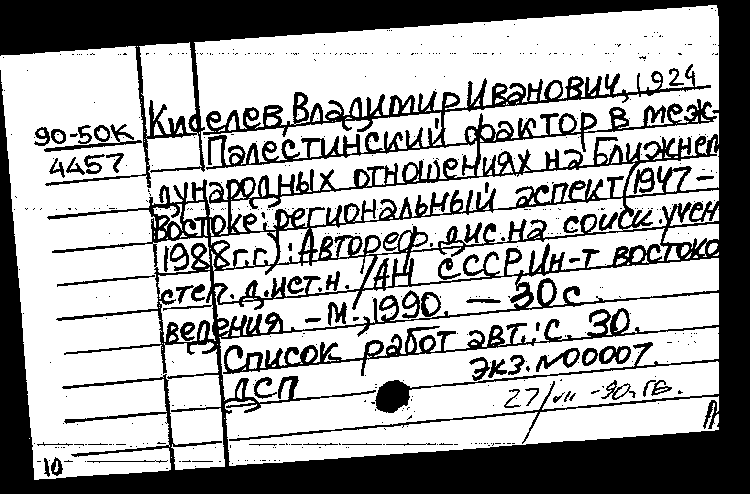 Киселев, Владимир Иванович, 1924
90-50К
4457
Палестинский фактор в меж-
дународных отношениях на Ближнем
Востоке: региональный аспект (1947-
1988г.г.): Автореф. дис. на соиск. учен.
степ. д. ист. н. / АН СССР, Ин-т востоко
ведения. - М., 1990. - 30с.
Список работ авт.: с. 30.
экз. №00007.
ДСП
27/VII -90г.
10